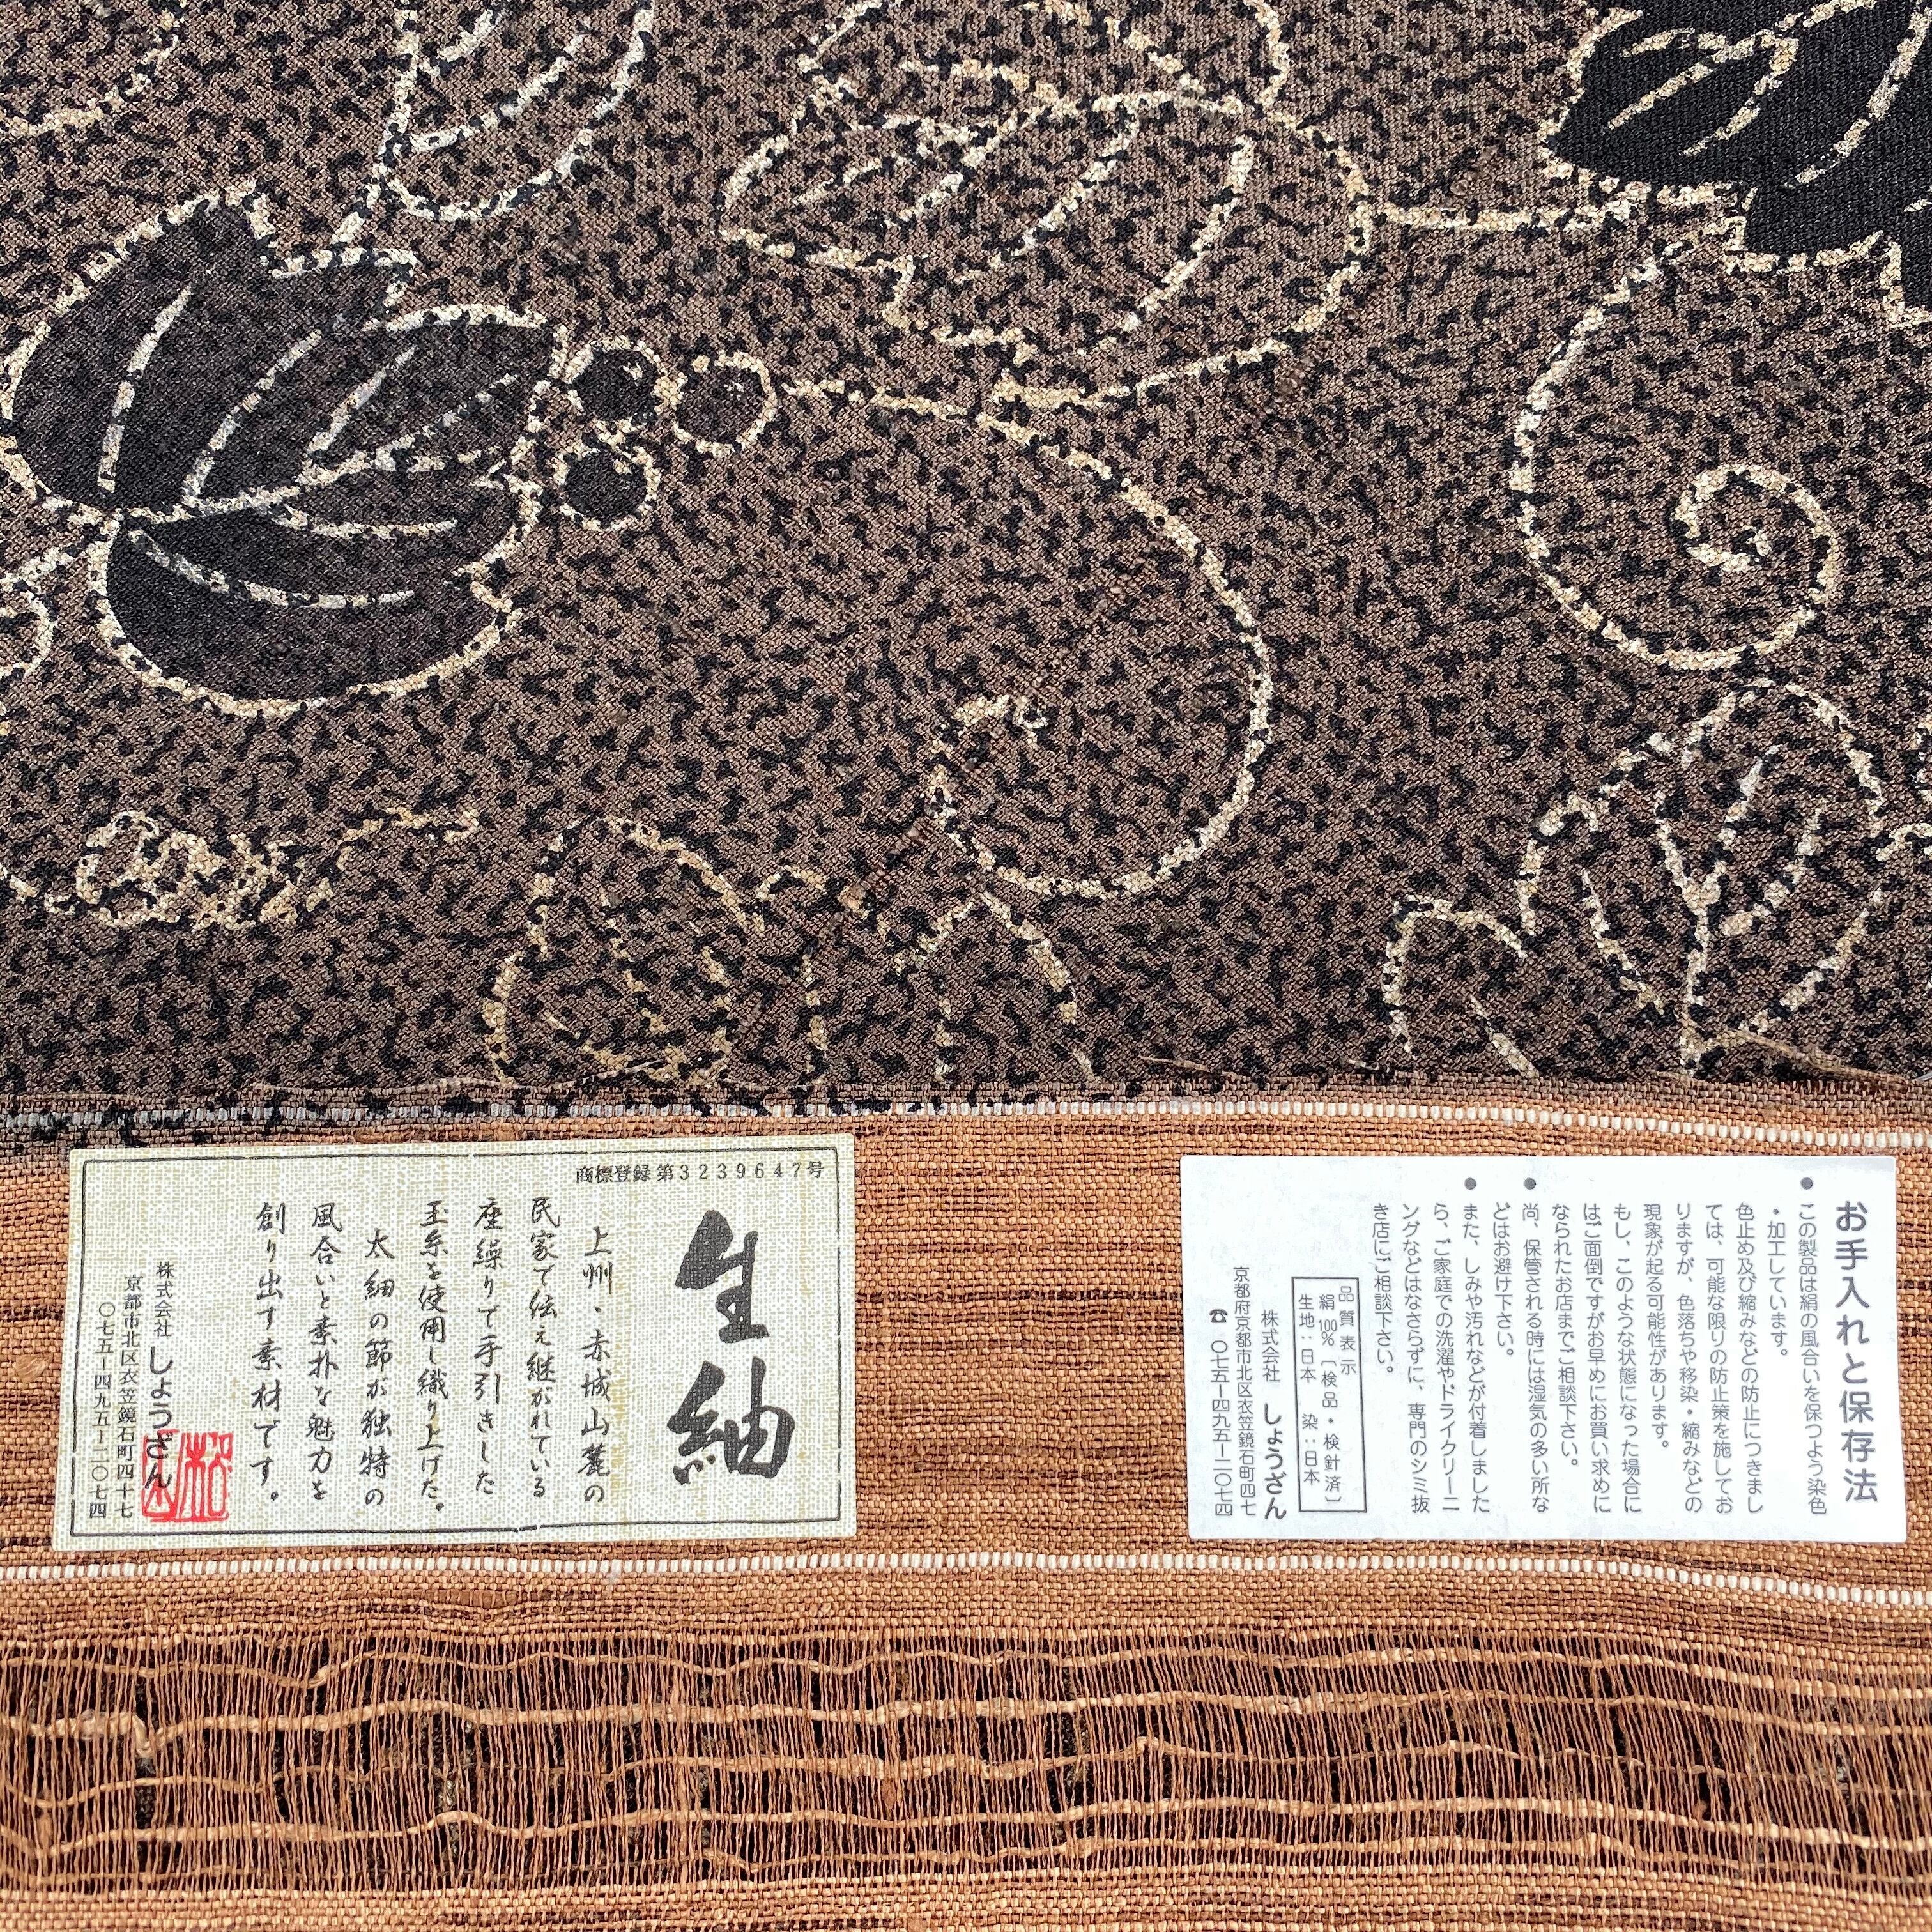 商標登録 第3239647号
生紬
上州・赤城山麓の
民家で伝え継がれている
座繰りで手引きした
玉糸を使用し織り上げた。
太細の節が独特の
風合いと素朴な魅力を
創り出す素材です。
株式会社 しょうざん
京都市北区衣笠鏡石町四十七
〇七五-四九五-二〇七四
お手入れと保存法
●この製品は絹の風合いを保つよう染色
・加工しています。
色止め及び縮みなどの防止につきまし
ては、可能な限りの防止策を施してお
りますが、色落ちや移染・縮みなどの
現象が起る可能性があります。
もし、このような状態になった場合に
はご面倒ですがお早めにお買い求めに
なられたお店までご相談下さい。
●尚、保管される時には湿気の多い所な
どはお避け下さい。
●また、しみや汚れなどが付着しました
ら、ご家庭での洗濯やドライクリーニ
ングなどはなさらずに、専門のシミ抜
き店にご相談下さい。
品質表示
絹100%〔検品・検針済〕
生地:日本 染:日本
株式会社 しょうざん
京都府京都市北区衣笠鏡石町四七
☎ 〇七五-四九五-二〇七四